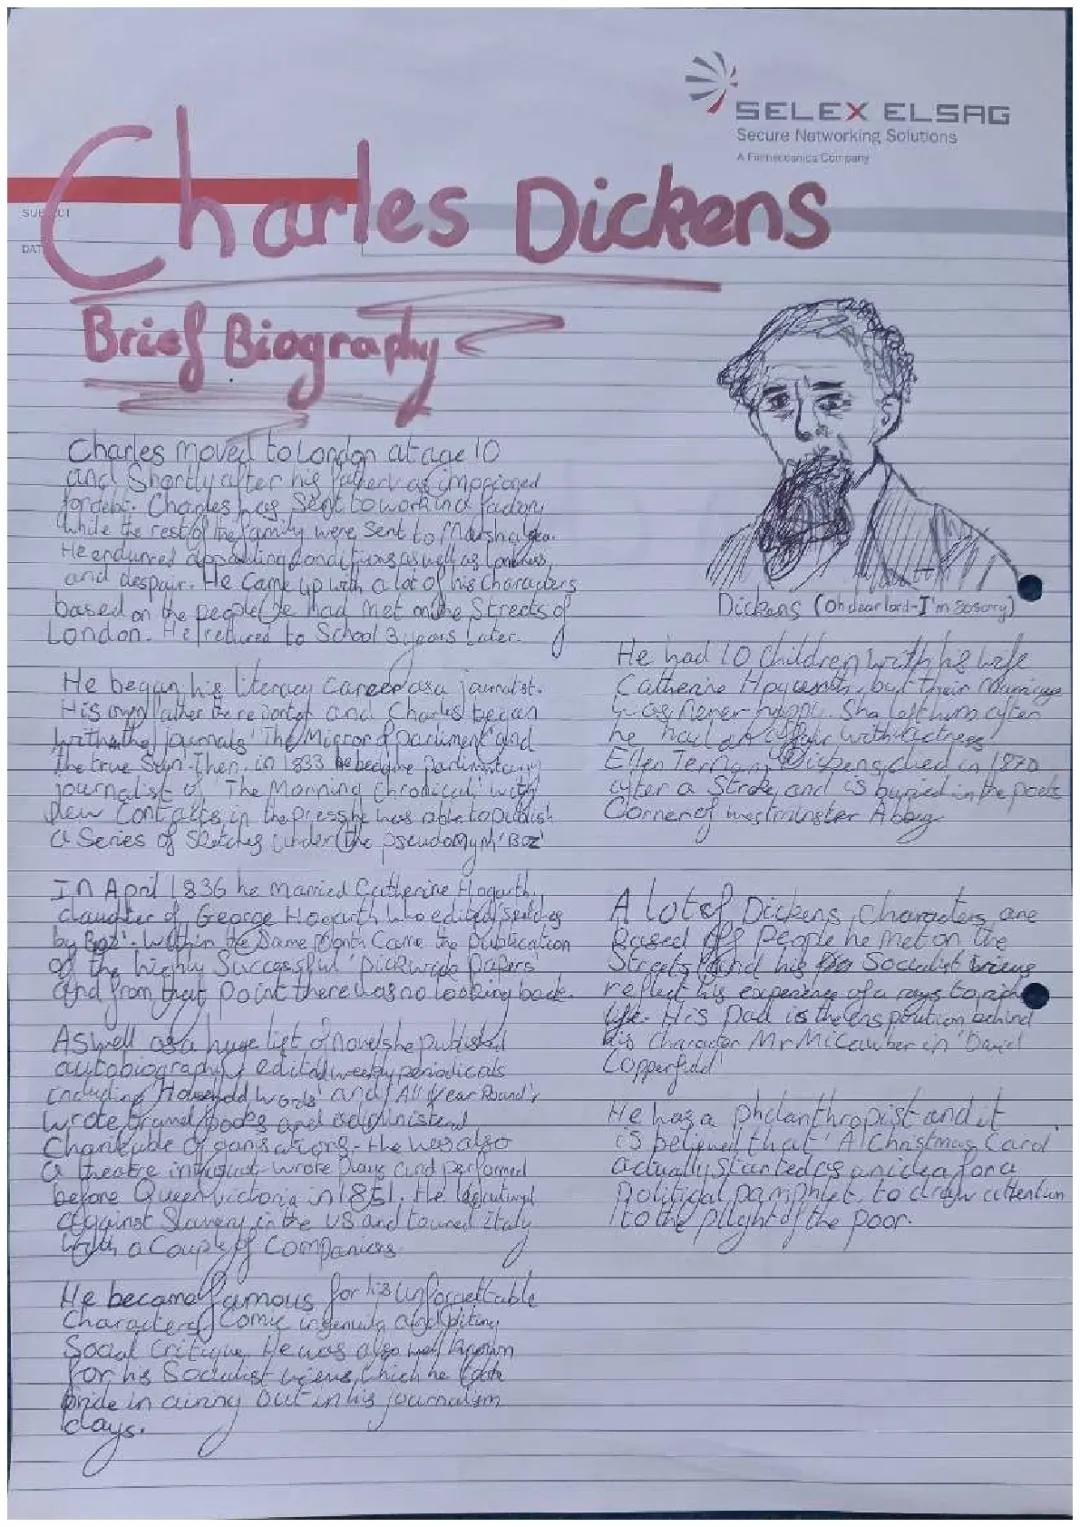 SELEX ELSAG
Secure Networking Solutions
A Finmeccanica Company
SUBJECT
DATE
Charles Dickens
Brief Biography
Charles moved to London at age 10
and Shortly after his father was impriosed
for debt. Charles was Sent to work in a factory
while the rest of the family were sent to Marshalsea.
He endurred appaulling conditions as well as
and despair. He came up with a lot of his characters
based on the people he had met on the Streets of
London. He returned to School 3 years later.
He began his literacy career as a journalist.
His own father the reporter and Charles began
with the journals 'The Mirror of Parliment' and
the true Sun. Then, in 1833 he became
journalist of 'The Morning Chronical' with
new contacts in the press he was able to publish
a Series of Sketches under the pseudomym 'Boz'
In April 1836 he married Catherine Hogarth,
daughter of George Hogarth who edited 'Sketches
by Boz'. Within the Same month came the publication
of the highly Successful 'pickwick papers'
and from that point there was no looking back.
Aswell as a huge list of novels he published
autobiography, edited weekly periodicals
including 'Household words' and 'All Year Round',
wrote travel books and administered
Charitable organisations. He was also
a theatre wrote plays and performed
before Queen victoria in 1851. He
against Slavery in the US and toured Italy
with a couple of companions.
He became famous for his unforgettable
characters, Comic ingenuity and biting
Social critique. He was also well known
for his Socialist views, which he took
pride in out in his journalism
days.
Dickens (Oh dear lord-I'm so sorry)
He had 10 children with his wife
Catherine but their marriage
was never happy. She left him after
he had an affair with actress
Ellen Ternan, Dickens died in 1870
after a Stroke, and is buried in the poets
Corner of westminster Abbey
A lot of Dickens, characters, are
Based off people he met on the
Streets and his Socialist views
reflect his experience of a rags to rich
life. His Dad is the behind
his character Mr in 'David
Copperfield'
He was a philanthropist and it
is believed that 'A Christmas Carol
actually started as an idea for a
Political pamphlet, to draw attention
to the plight of the poor.